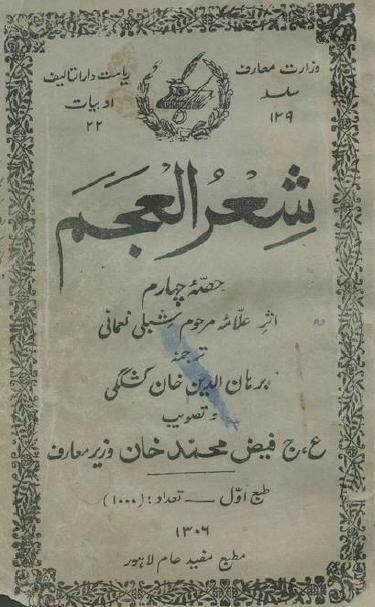 وزارت معارف
سلسلہ
۱۲۹
ریاست دارالتالیف
ادبیات
۲۲
شِعْرُ الْعَجَم
حصّۂ چهارم
اثرِ علّامۂ مرحوم شبلی نعمانی
ترجمۂ
برهان الدین خان کشککی
به تصویب
ع، ج فیض محمد خان وزیر معارف
طبع اوّل — تعداد: (۱۰۰۰)
۱۳۰۶
مطبع مفید عام لاہور